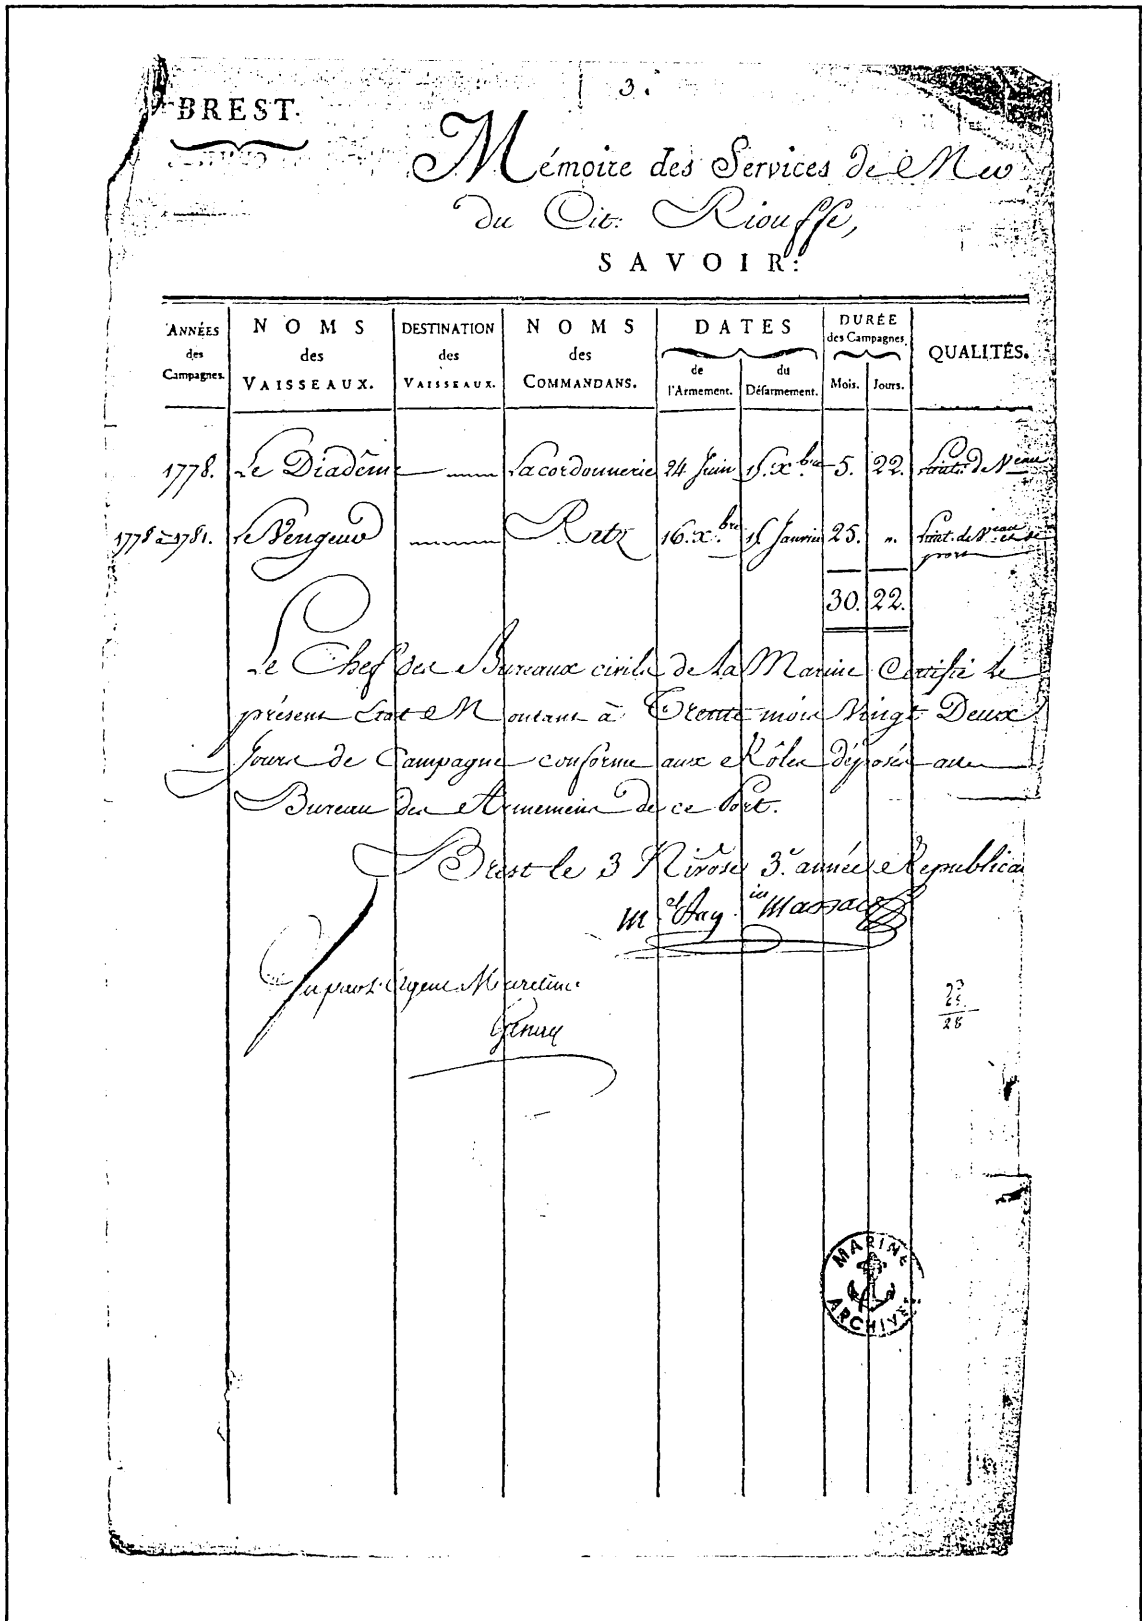 3.
BREST.
Mémoire des Services de Mer
du Cit. Riouffe,
SAVOIR:
ANNÉES des Campagnes.
NOMS des VAISSEAUX.
DESTINATION des VAISSEAUX.
NOMS des COMMANDANS.
DATES
de l'Armement.
du Désarmement.
DURÉE des Campagnes.
Mois.
Jours.
QUALITÉS.
1778. Le Diadême Lacordonnerie 24 Juin 15. Xbre 5. 22. de Veau
1778 à 1781. Le Vengeur Retz 16. Xbre 15 Janvier 25. " de Veau et de port
30. 22.
Le Chef des Bureaux civils de la Marine Certifie le
présent Etat Montant à Trente mois Vingt Deux
Jours de Campagne conforme aux Rôles déposés au
Bureau des Armemens de ce Port.
Brest le 3 Nivôse 3.e année Republicai
Vu par l'Agent Maritime
28
MARINE
ARCHIVES